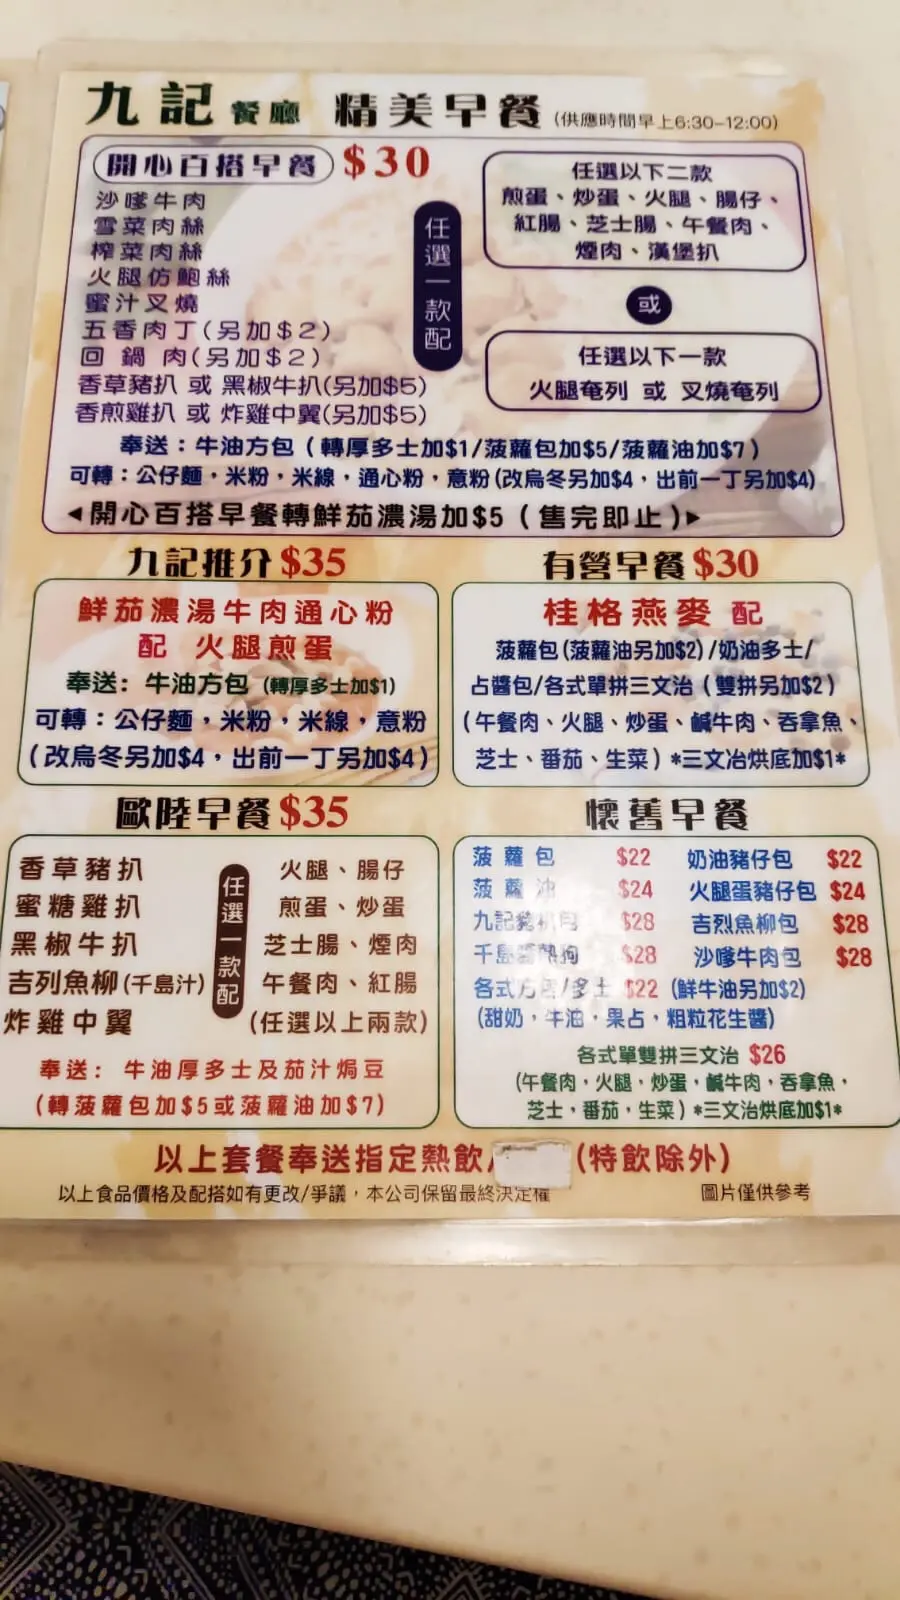 九記餐廳 精美早餐 (供應時間早上6:30-12:00)
開心百搭早餐 $30
沙嗲牛肉
雪菜肉絲
榨菜肉絲
火腿仿鮑絲
蜜汁叉燒
五香肉丁(另加$2)
回鍋肉(另加$2)
香草豬扒 或 黑椒牛扒(另加$5)
香煎雞扒 或 炸雞中翼(另加$5)
任選一款配
任選以下二款
煎蛋、炒蛋、火腿、腸仔、
紅腸、芝士腸、午餐肉、
煙肉、漢堡扒
或
任選以下一款
火腿奄列 或 叉燒奄列
奉送：牛油方包（轉厚多士加$1/菠蘿包加$5/菠蘿油加$7）
可轉：公仔麵，米粉，米線，通心粉，意粉(改烏冬另加$4，出前一丁另加$4)
◂開心百搭早餐轉鮮茄濃湯加$5（售完即止）▸
九記推介 $35
鮮茄濃湯牛肉通心粉
配 火腿煎蛋
奉送：牛油方包（轉厚多士加$1）
可轉：公仔麵，米粉，米線，意粉
(改烏冬另加$4，出前一丁另加$4)
有營早餐 $30
桂格燕麥 配
菠蘿包(菠蘿油另加$2)/奶油多士/
占醬包/各式單拼三文治（雙拼另加$2）
(午餐肉、火腿、炒蛋、鹹牛肉、吞拿魚、
芝士、番茄、生菜）*三文治烘底加$1*
歐陸早餐 $35
香草豬扒
蜜糖雞扒
黑椒牛扒
吉列魚柳(千島汁)
炸雞中翼
任選一款配
火腿、腸仔
煎蛋、炒蛋
芝士腸、煙肉
午餐肉、紅腸
(任選以上兩款)
奉送：牛油厚多士及茄汁焗豆
(轉菠蘿包加$5或菠蘿油加$7)
懷舊早餐
菠蘿包 $22 奶油豬仔包 $22
菠蘿油 $24 火腿蛋豬仔包 $24
九記豬扒包 $28 吉烈魚柳包 $28
千島醬熱狗 $28 沙嗲牛肉包 $28
各式方包/多士 $22 (鮮牛油另加$2)
(甜奶，牛油，果占，粗粒花生醬)
各式單雙拼三文治 $26
(午餐肉，火腿，炒蛋，鹹牛肉，吞拿魚，
芝士，番茄，生菜）*三文治烘底加$1*
以上套餐奉送指定熱飲/ (特飲除外)
以上食品價格及配搭如有更改/爭議，本公司保留最終決定權
圖片僅供參考